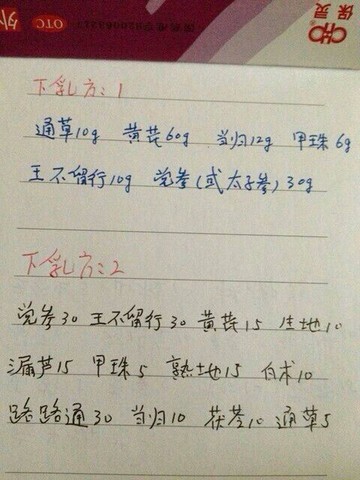 外
OTC
保灵
下乳方:1
通草10g 黄芪60g 当归12g 甲珠6g
王不留行10g 党参(或太子参)30g
下乳方:2
党参30 王不留行30 黄芪15 生地10
漏芦15 甲珠5 熟地15 白术10
路路通30 当归10 茯苓10 通草5